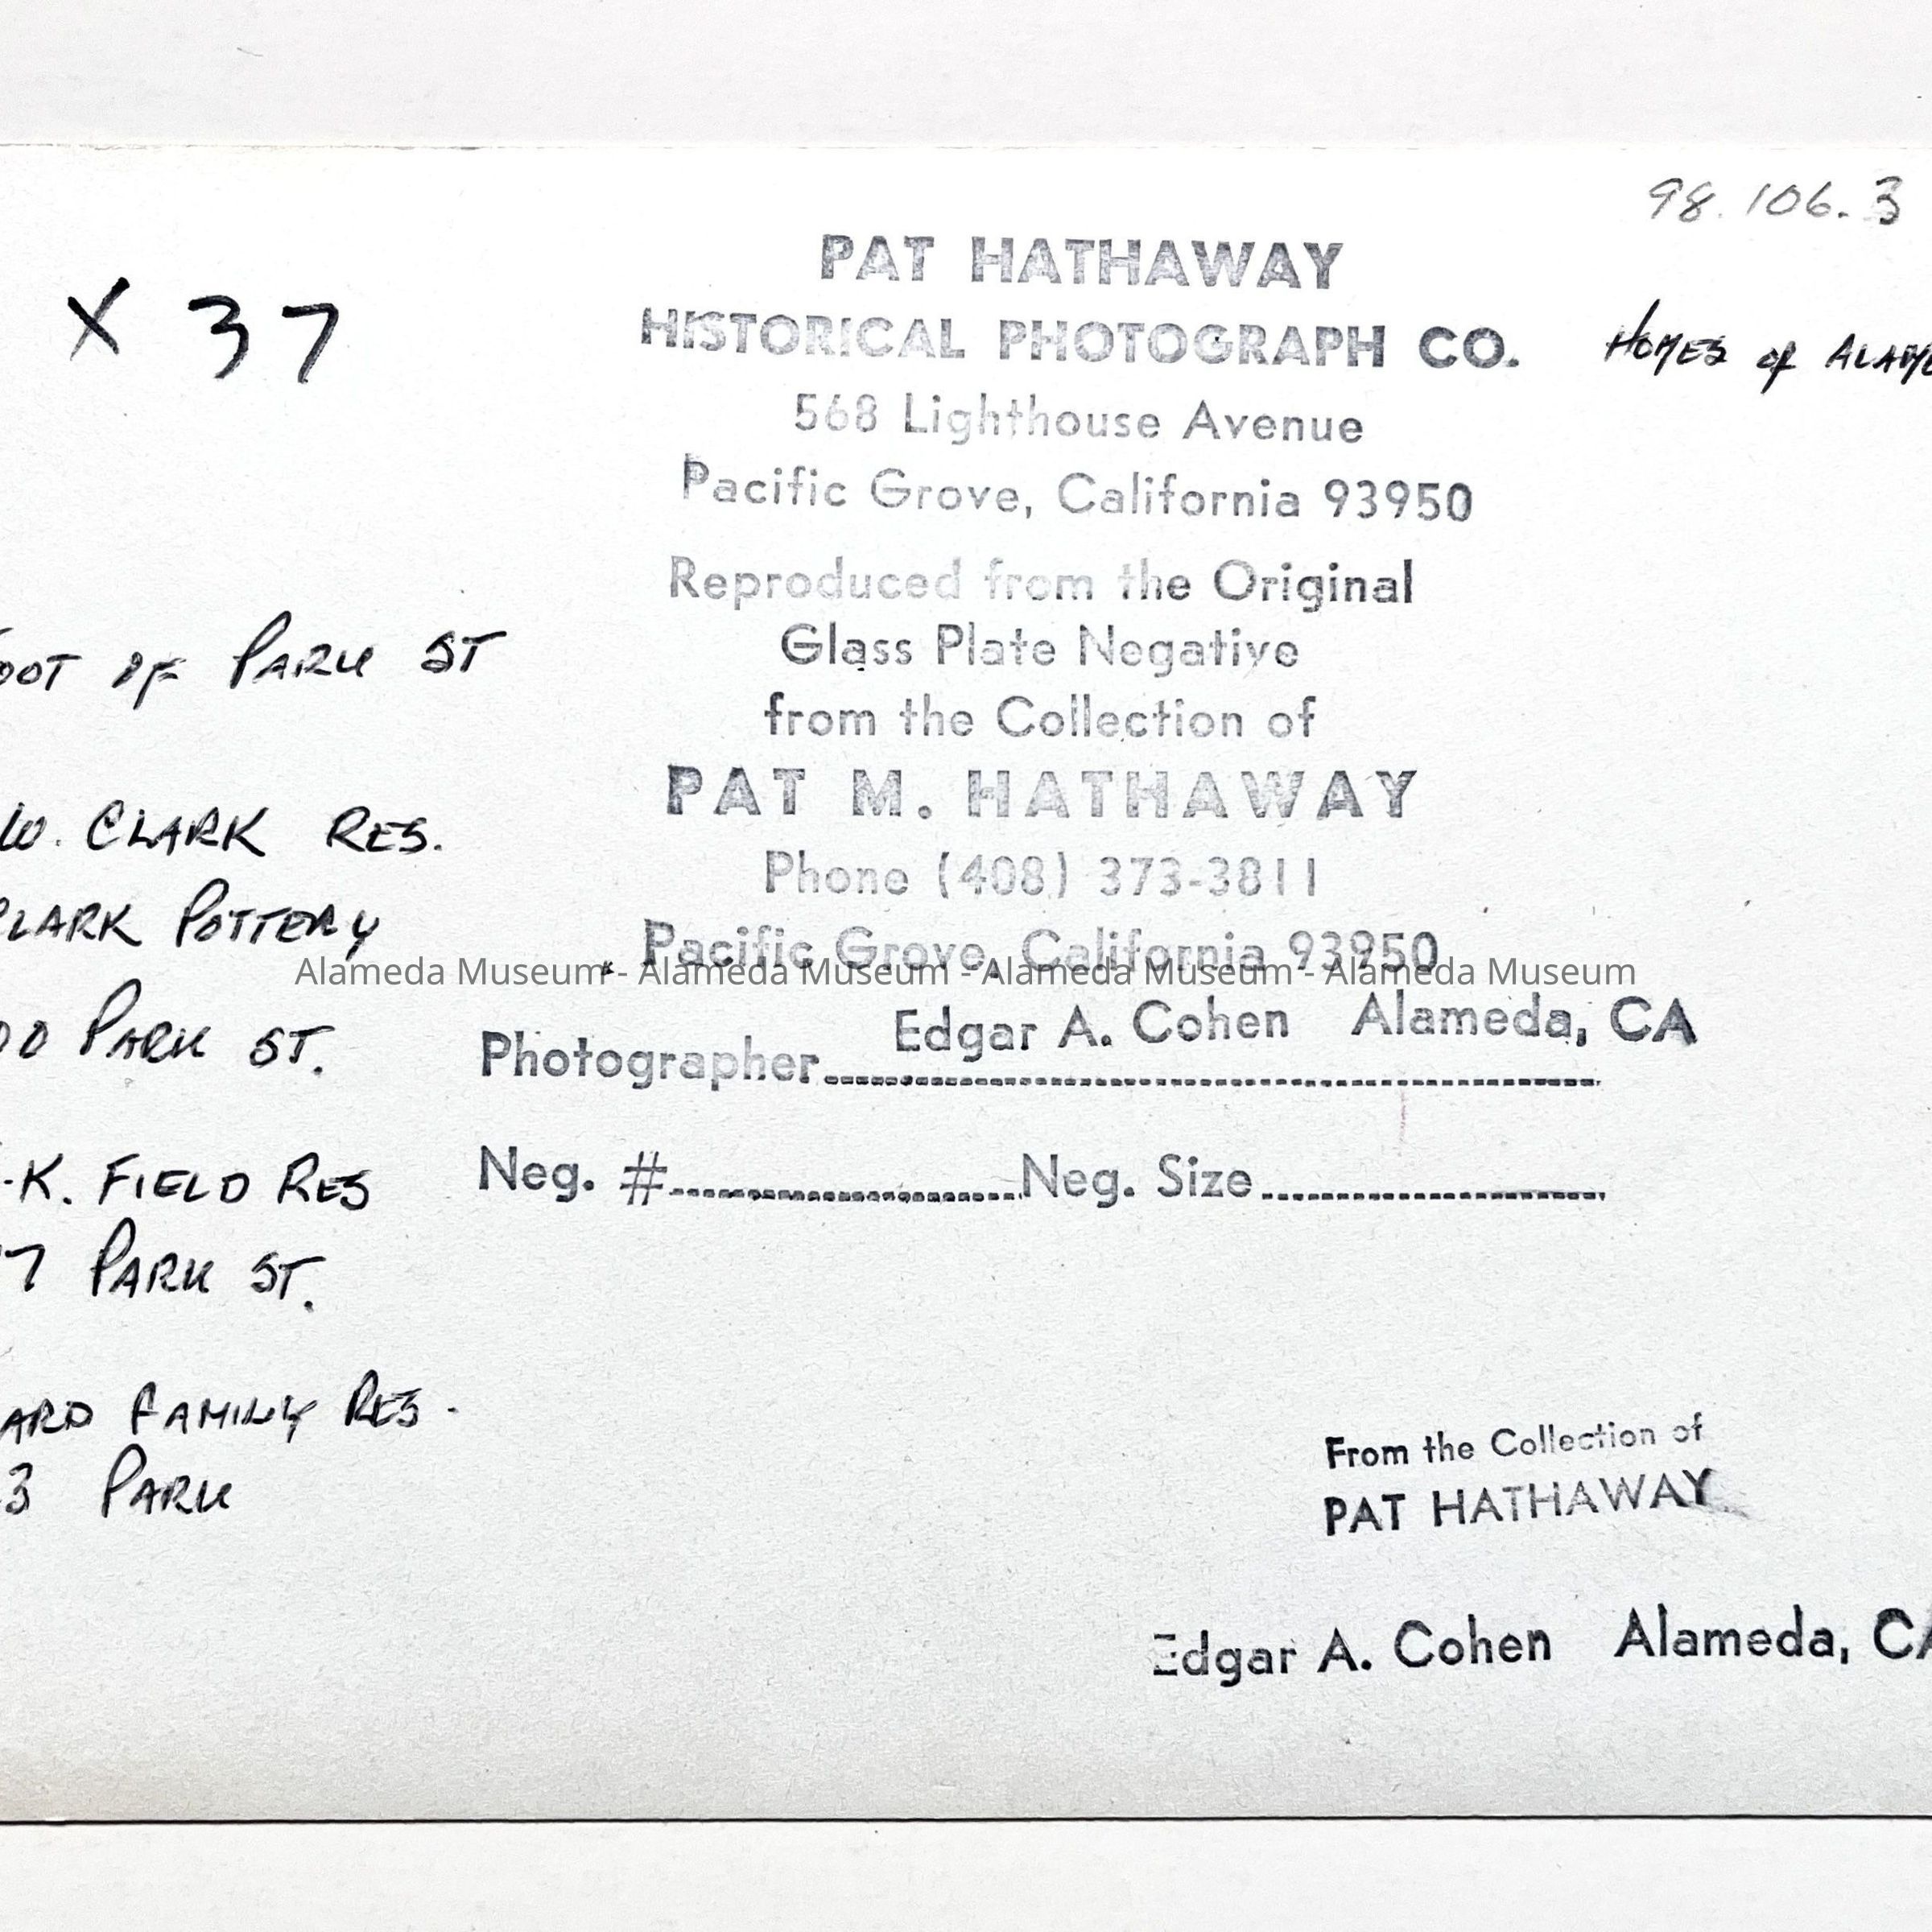 98.106.3
X 37
PAT HATHAWAY
HISTORICAL PHOTOGRAPH CO.
568 Lighthouse Avenue
Pacific Grove, California 93950
HOMES OF ALAME
Reproduced from the Original
Glass Plate Negative
from the Collection of
PAT M. HATHAWAY
Phone (408) 373-3811
Pacific Grove, California 93950
Alameda Museum - Alameda Museum - Alameda Museum - Alameda Museum
Photographer Edgar A. Cohen Alameda, CA
Neg. # Neg. Size
OOT OF PARK ST
W. CLARK RES.
CLARK POTTERY
00 PARK ST.
K. FIELD RES
7 PARK ST.
ARD FAMILY RES.
3 PARK
From the Collection of
PAT HATHAWAY
Edgar A. Cohen Alameda, CA